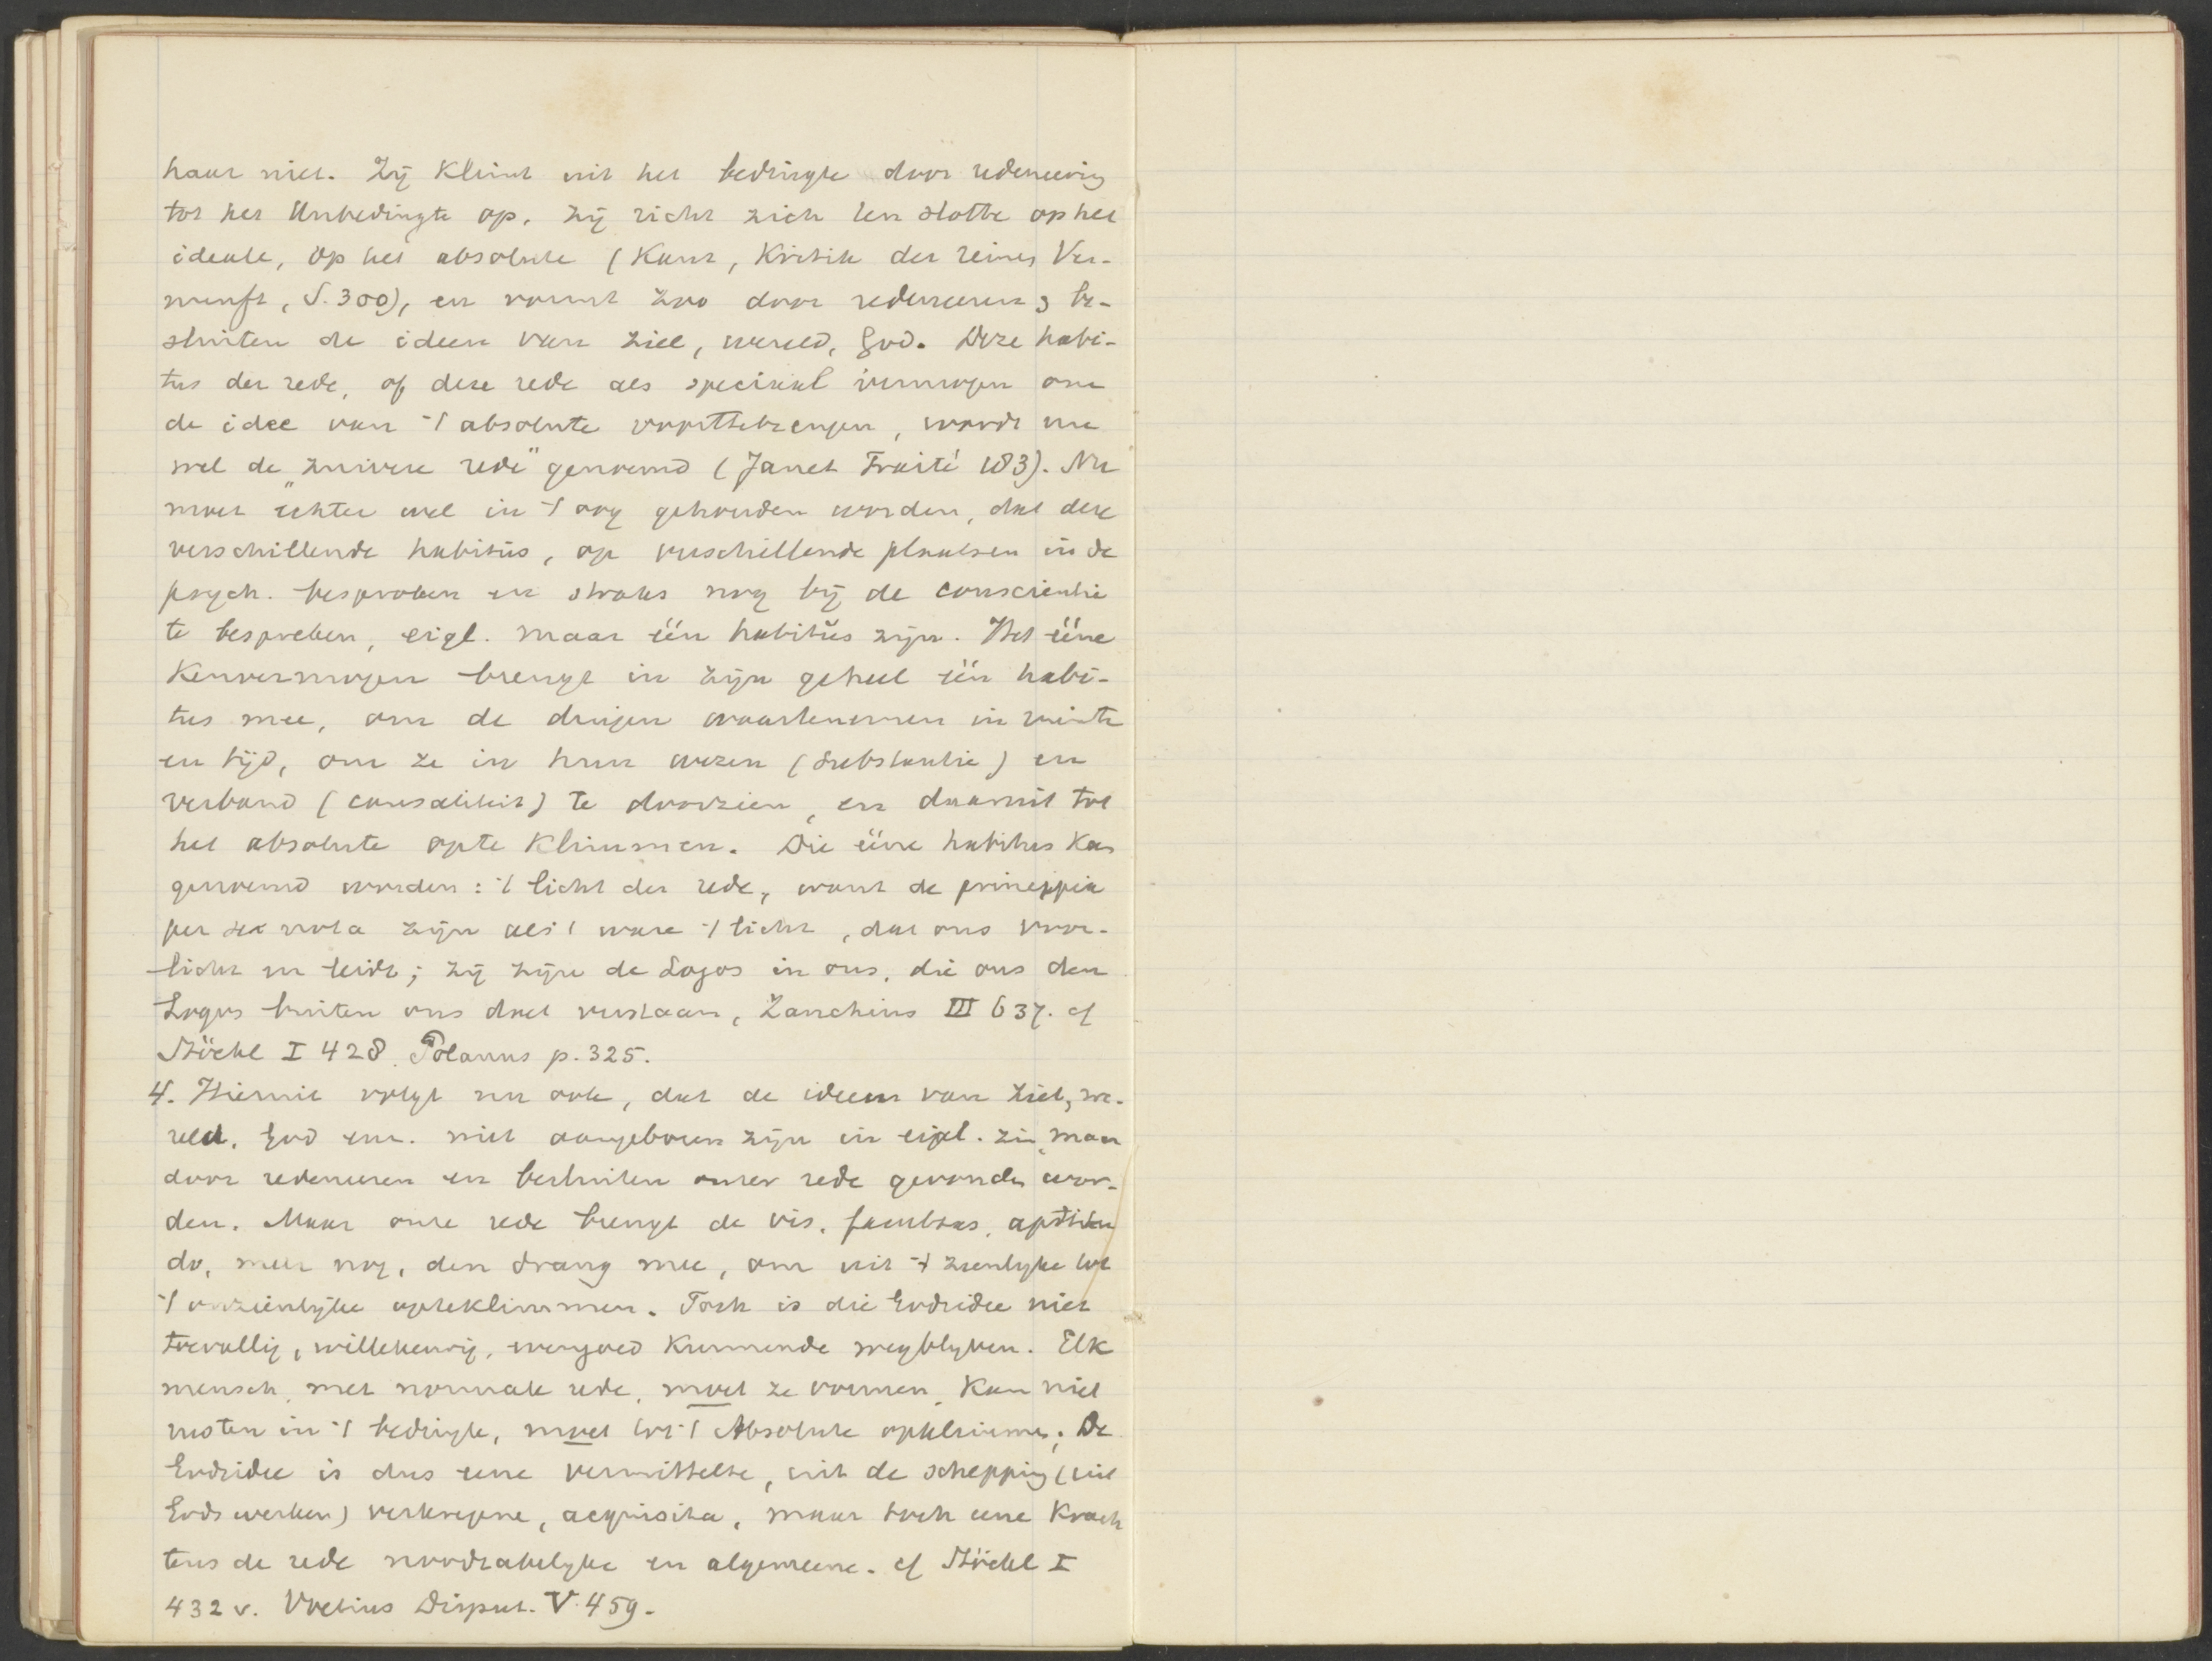 haar niet. Zij klimt uit het bedingte door redeneering
tot het Unbedingte op, zij richt zich ten slotte op het
ideale, op het absolute (Kant, Kritik der reinen Ver-
nunft, S. 300), en vormt zoo door redeneeren & be-
sluiten de ideen van ziel, wereld, God. Deze habi-
tus der rede, of deze rede als speciaal vermogen om
de idee van 't absolute voorttebrengen, wordt nu
wel de „zuivere rede" genoemd (Janet Traité 183). Nu
moet echter wel in 't oog gehouden worden, dat deze
verschillende habitus, op verschillende plaatsen in de
psych. besproken en straks nog bij de conscientie
te bespreken, eigl. maar één habitus zijn. Het ééne
Kenvermogen brengt in zijn geheel één habi-
tus mee, om de dingen waartenemen in ruimte
en tijd, om ze in hun wezen (substantie) en
verband (causaliteit) te doorzien, en daaruit tot
het absolute opte klimmen. Die ééne habitus kan
genoemd worden: 't licht der rede, want de principia
per se nota zijn als 't ware 't licht, dat ons voor-
licht en leidt; zij zijn de Logos in ons, die ons den
Logos buiten ons doet verstaan, Zanchius III 637. cf
Stöckl I 428. Polanus p. 325.
4. Hieruit volgt nu ook, dat de ideeen van ziel, we-
reld, God enz. niet aangeboren zijn in eigl. zin, maar
door redeneeren en besluiten onzer rede gevonden wor-
den. Maar onze rede brengt de vis, facultas, aptitu
do, meer nog, den drang mee, om uit 't zienlijke tot
't onzienlijke opteklimmen. Toch is die Godsidee niet
toevallig, willekeurig, evengoed kunnende wegblijven. Elk
mensch, met normale rede, moet ze vormen, kan niet
rusten in 't bedingte, moet tot 't Absolute opklimmen. De
Godsidee is dus eene vermittelte, uit de schepping (uit
Gods werken) verkregene, acquisita, maar toch eene krach
tens de rede noodzakelijke en algemeene. cf Stöckl I
432 v. Voetius Disput. V. 459.